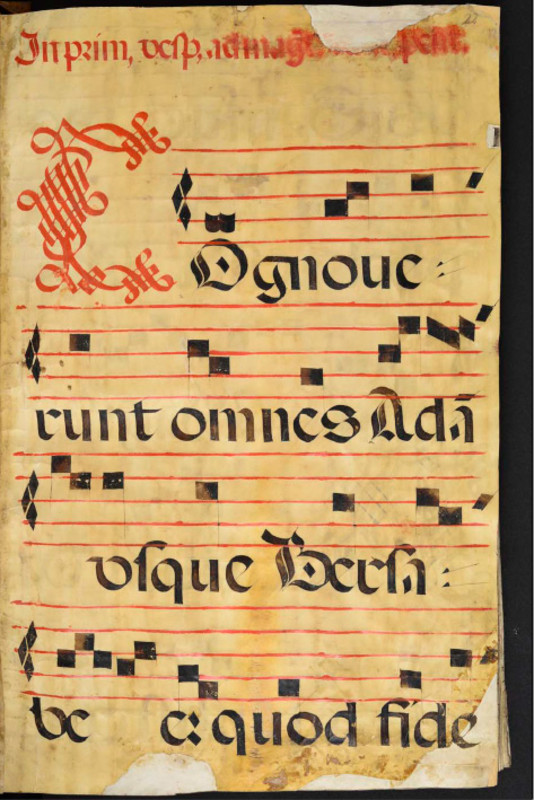 In prim, vesp, ad mag̃
COgnoue:
runt omnes Adã
vsque Bersa:
be et quod fide